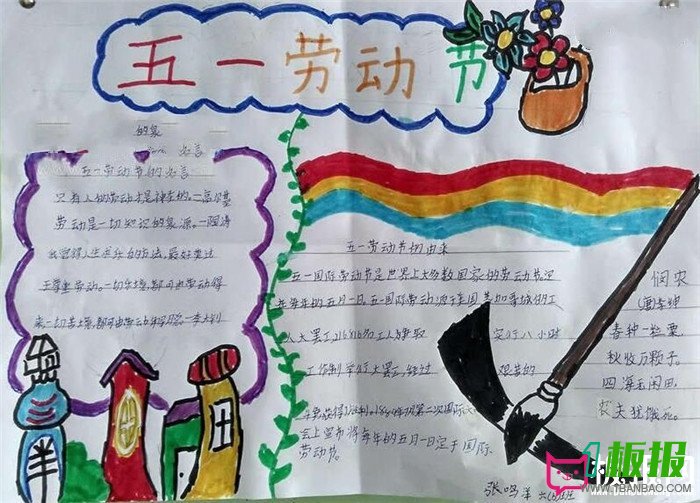 五一劳动节
名言
五一劳动节的名言
只有人的劳动才是神圣的。—高尔基
劳动是一切知识的源泉。—陶铸
我觉得人生求乐的方法,最好莫过
于尊重劳动。一切乐境,都可由劳动得
来一切苦境,都可由劳动 李大钊
五一劳动节的由来
五一国际劳动节是世界上大多数国家的劳动节。定
在每年的五月一日。五一国际劳动源于美国芝加哥城的工
人大罢工,216 工人为争取 实行八小时
工作制举行大罢工,经过 艰苦的
1889年 第二次国际
会上宣布将每年的五月一日定于国际
劳动节。
悯农
春种一粒粟,
秋收万颗子。
四海无闲田,
农夫犹饿死。
板报
WWW.1BANBAO.COM